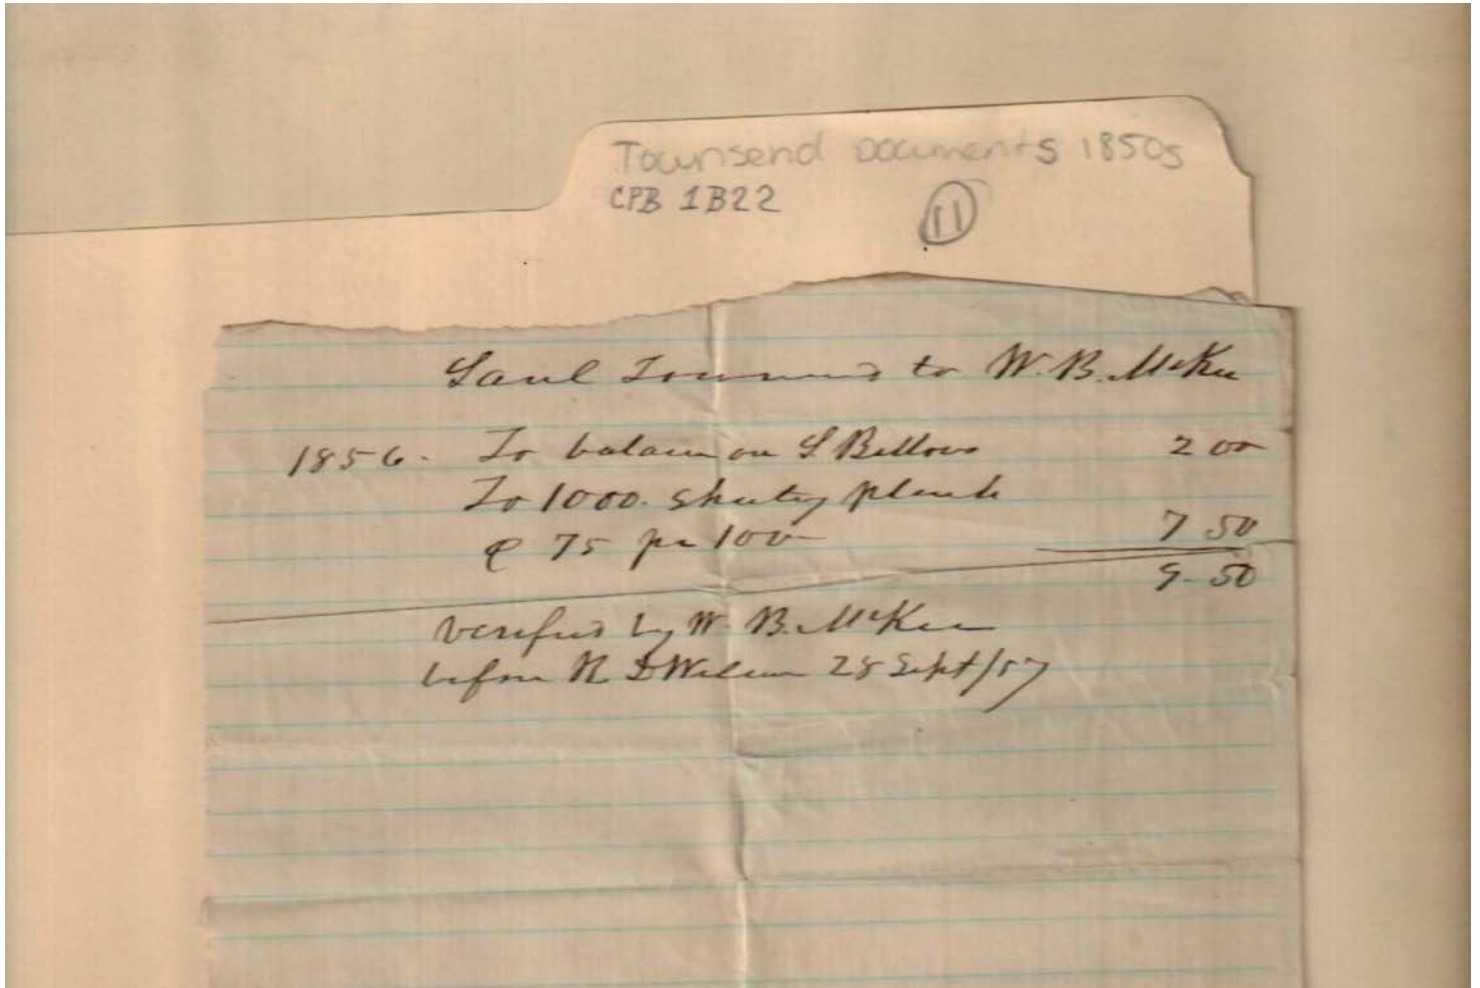 Townsend Documents 1850s
CPB 1B22
11
Saml Townsend to W. B. McKee
1856. To balance on S Bellows 2 00
To 1000. sheeting plank
@ 75 pr 100 7 50
9.50
Verified by W. B. McKee
before R D Wilson 28 Sept/57